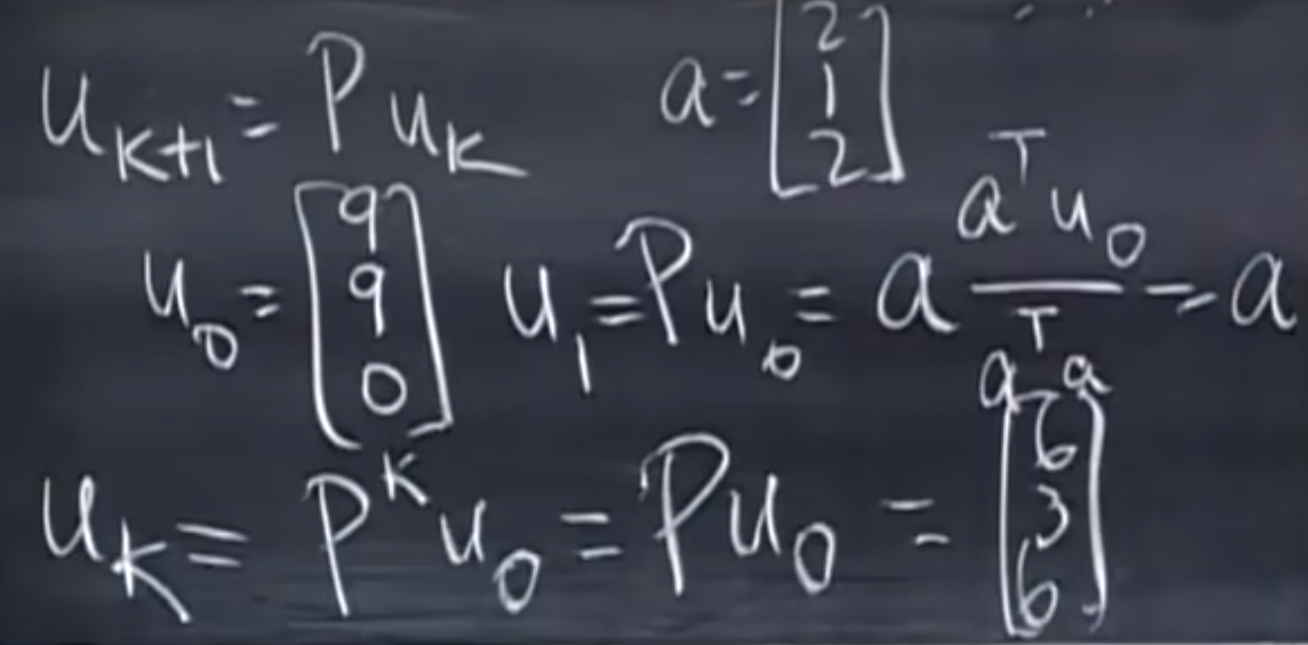 u_{k+1} = P u_k    a = \begin{bmatrix} 2 \\ 1 \\ 2 \end{bmatrix}
u_0 = \begin{bmatrix} 9 \\ 9 \\ 0 \end{bmatrix}    u_1 = P u_0 = a \frac{a^T u_0}{a^T a} = a
u_k = P^k u_0 = P u_0 = \begin{bmatrix} 6 \\ 3 \\ 6 \end{bmatrix}